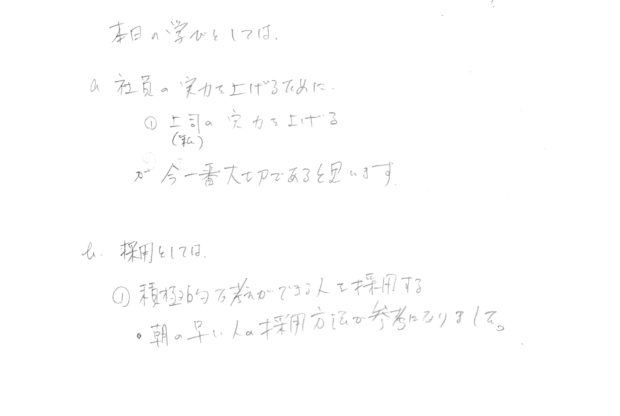 本日の学びとしては、
a. 社員の実力を上げるために
① 上司の実力を上げる
(私)
が今一番大切であると思います
b. 採用としては、
① 積極的な考えができる人を採用する
・朝の早い人の採用方法が参考になりました。